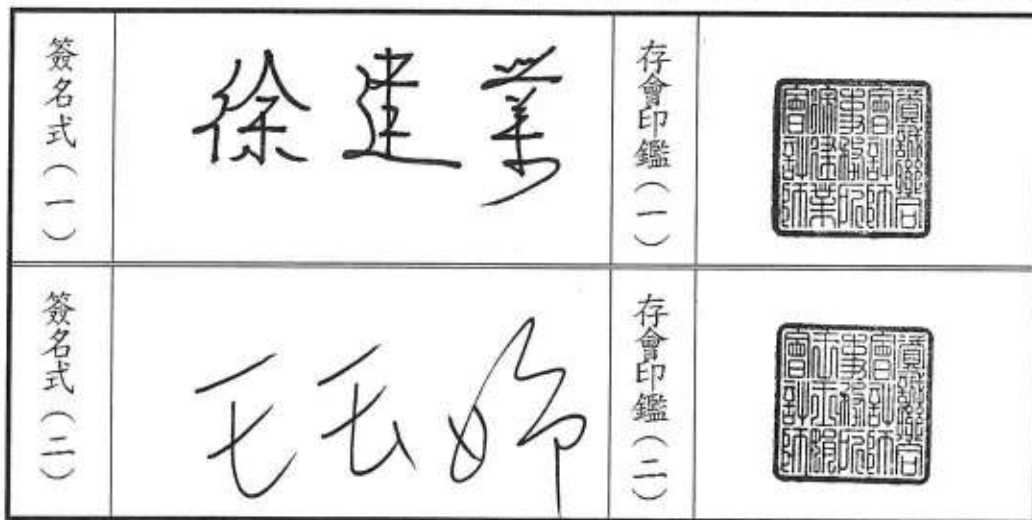 簽名式(一)
徐建業
存會印鑑(一)
資誠聯合
會計師
事務所
徐建業
會計師
簽名式(二)
王玉娟
存會印鑑(二)
資誠聯合
會計師
事務所
王玉娟
會計師